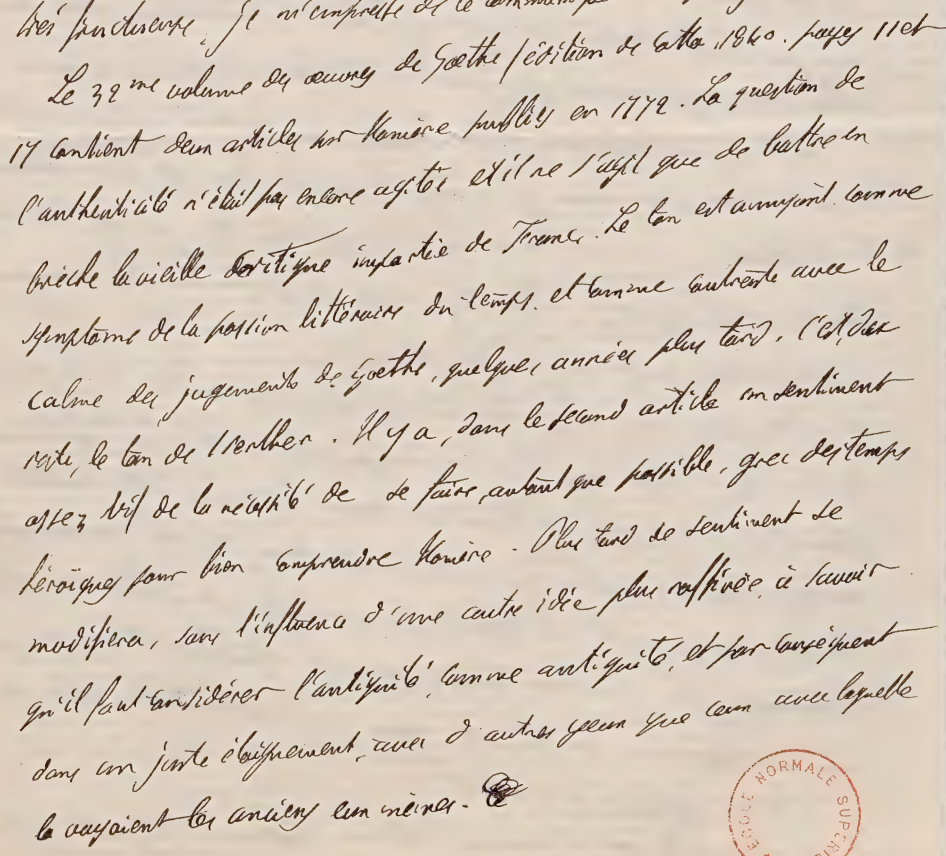 très fructueuse, je m'empresse de
Le 32me volume des œuvres de Goethe (édition de Cotta 1840. pages 11 et
17 contient deux articles sur Homère publiés en 1772. La question de
l'authenticité n'était pas encore agitée et il ne s'agit que de battre en
brèche la vieille critique impartie de France. Le ton est amusant comme
symptôme de la passion littéraire du temps, et comme contraste avec le
calme des jugements de Goethe, quelques années plus tard. C'est, du
reste, le ton de Werther. Il y a, dans le second article un sentiment
assez vif de la nécessité de se faire, autant que possible, grec des temps
héroïques pour bien comprendre Homère. Plus tard ce sentiment se
modifiera, sous l'influence d'une autre idée plus raffinée, à savoir
qu'il faut considérer l'antiquité comme antiquité, et par conséquent
dans un juste éloignement, avec d'autres yeux que ceux avec laquelle
la voyaient les anciens eux mêmes.
ECOLE NORMALE SUPERIE